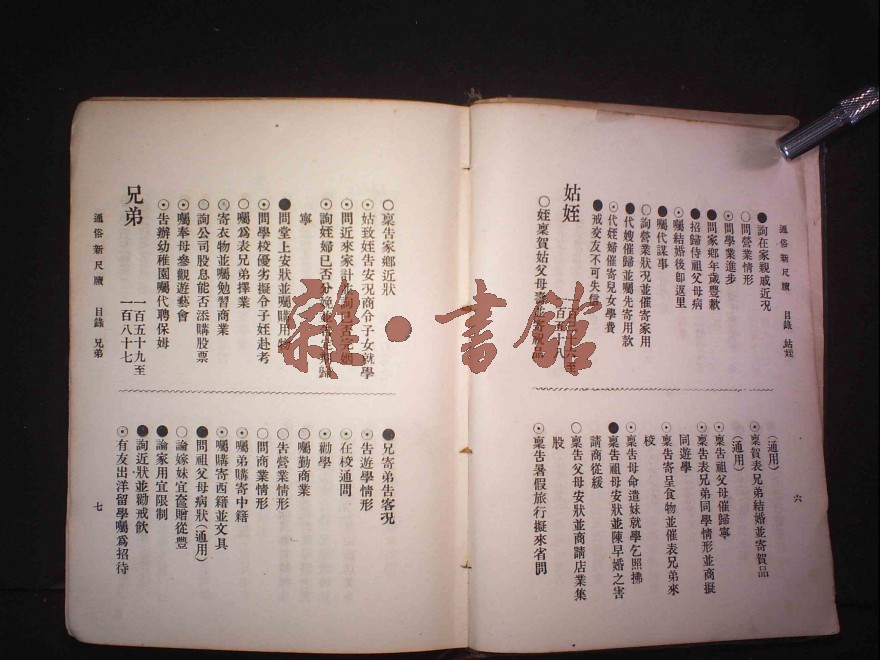 通俗新尺牘 目錄 姑姪 六
●詢在家親戚近況
○問營業情形
⊙問學業進步
●問家鄉年歲豐歉
●招歸侍祖父母病
⊙囑結婚後即返里
●囑代謀事
○詢營業狀況並催寄家用
●代嫂催歸並囑先寄用款
⊙代姪婦催寄兒女學費
●戒交友不可失信
姑姪
○姪稟賀姑父母壽並寄祝品
(通用)
⊙稟賀表兄弟結婚並寄賀品
(通用)
⊙稟告祖父母催歸寧
⊙稟告表兄弟同學情形並商擬
同遊學
⊙稟告寄呈食物並催表兄弟來
校
⊙稟告母命遣妹就學乞照拂
●稟告祖母安狀並陳早婚之害
請商從緩
○稟告父母安狀並商請店業集
股
⊙稟告暑假旅行擬來省問
○稟告家鄉近狀
⊙姑致姪告安況商令子女就學
⊙問近來家計並詢已否完姻
⊙詢姪婦已否分娩並告定期歸
寧
●問堂上安狀並囑購用物
⊙問學校優劣擬令子姪赴考
○囑爲表兄弟擇業
⊙寄衣物並囑勉習商業
⊙詢公司股息能否添購股票
⊙囑奉母參觀遊藝會
⊙告辦幼稚園囑代聘保姆
兄弟 一百五十九至
一百八十七
●兄寄弟告客況
⊙告遊學情形
⊙在校通問
⊙勸學
○囑勤商業
○告營業情形
○問商業情形
⊙囑弟購寄中籍
⊙囑購寄西籍並文具
●問祖父母病狀(通用)
○論嫁妹宜奩贈從豐
●論家用宜限制
●詢近狀並勸戒飲
⊙有友出洋留學囑爲招待
通俗新尺牘 目錄 兄弟 七
雜·書館